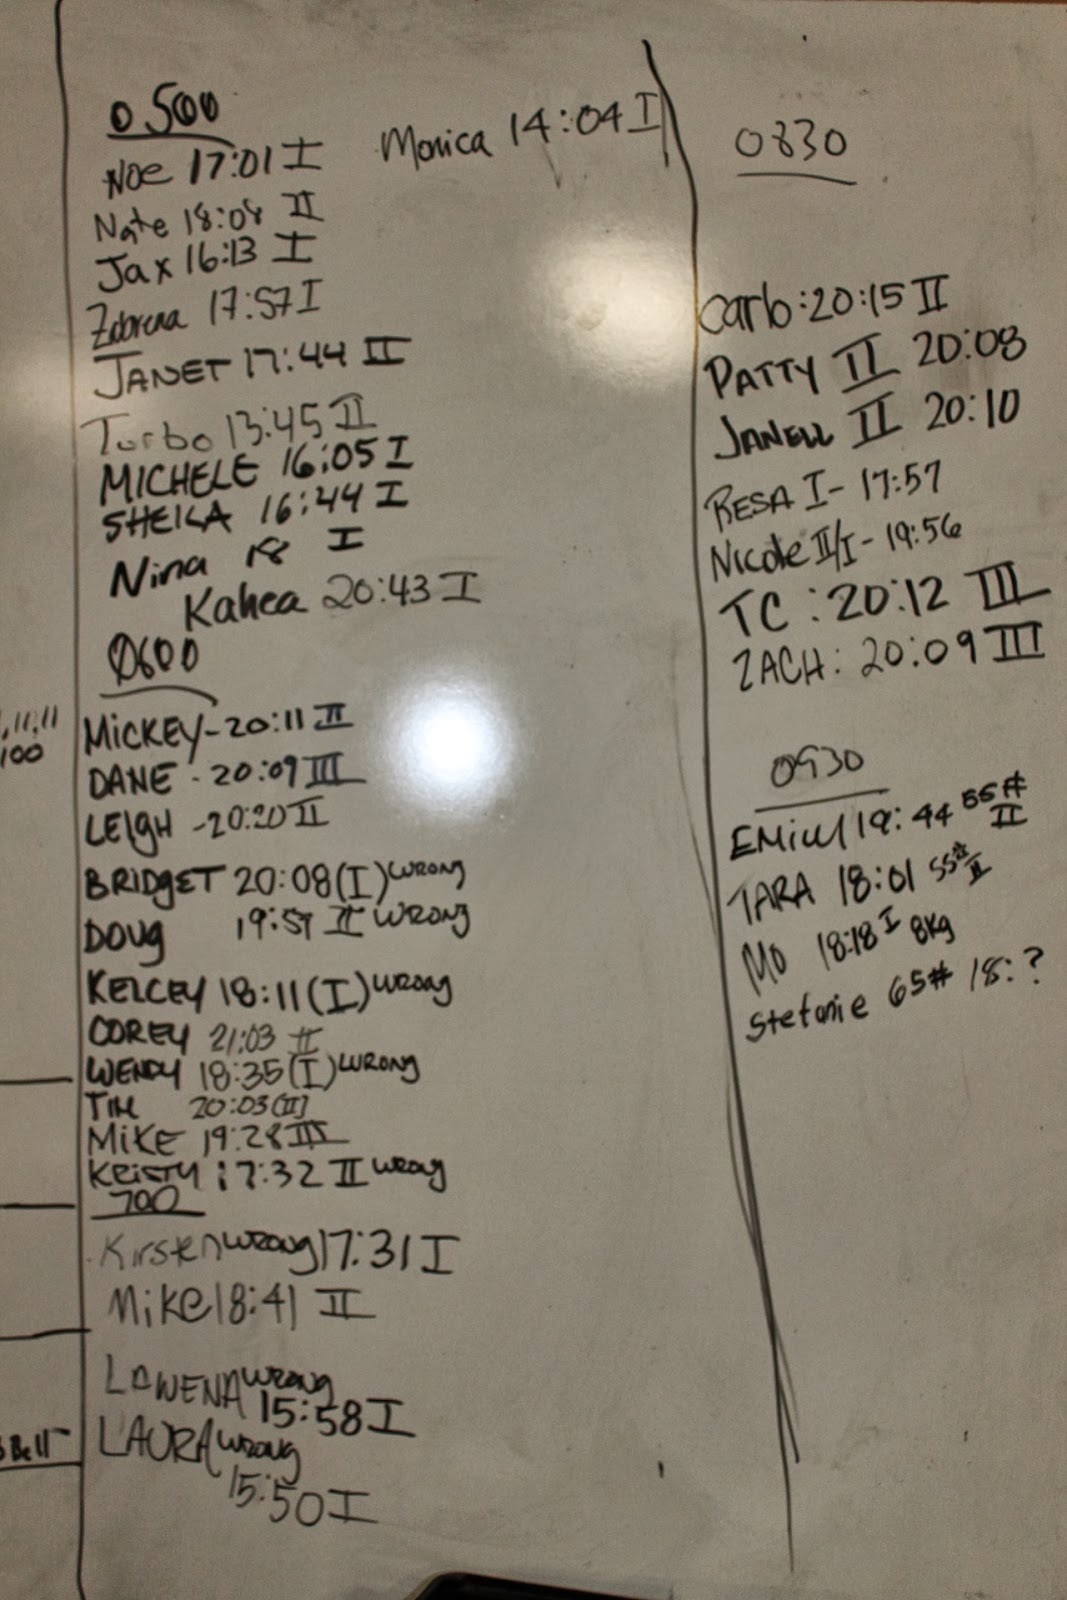 0500
Noe 17:01 I
Monica 14:04 I
Nate 18:08 II
Jax 16:13 I
Zabrena 17:57 I
JANET 17:44 II
Turbo 13:45 II
MICHELE 16:05 I
SHEILA 16:44 I
Nina 18 I
Kahea 20:43 I
0600
MICKEY - 20:11 II
DANE - 20:09 III
LEIGH - 20:20 II
BRIDGET 20:08 (I) WRONG
DOUG 19:57 II WRONG
KELCEY 18:11 (I) WRONG
COREY 21:03 II
WENDY 18:35 (I) WRONG
TIM 20:03 (II)
MIKE 19:28 III
KRISTY 17:32 II WRONG
700
Kirsten WRONG 17:31 I
Mike 18:41 II
LAWENA WRONG
15:58 I
LAURA WRONG
15:50 I
,11,11
100
Bell
0830
Carb: 20:15 II
PATTY II 20:08
JANELL II 20:10
RESA I - 17:57
Nicole II/I - 19:56
TC : 20:12 III
ZACH: 20:09 III
0930
EMILY 19:44 55# II
TARA 18:01 55# II
Mo 18:18 I 8kg
Stefanie 65# 18:?